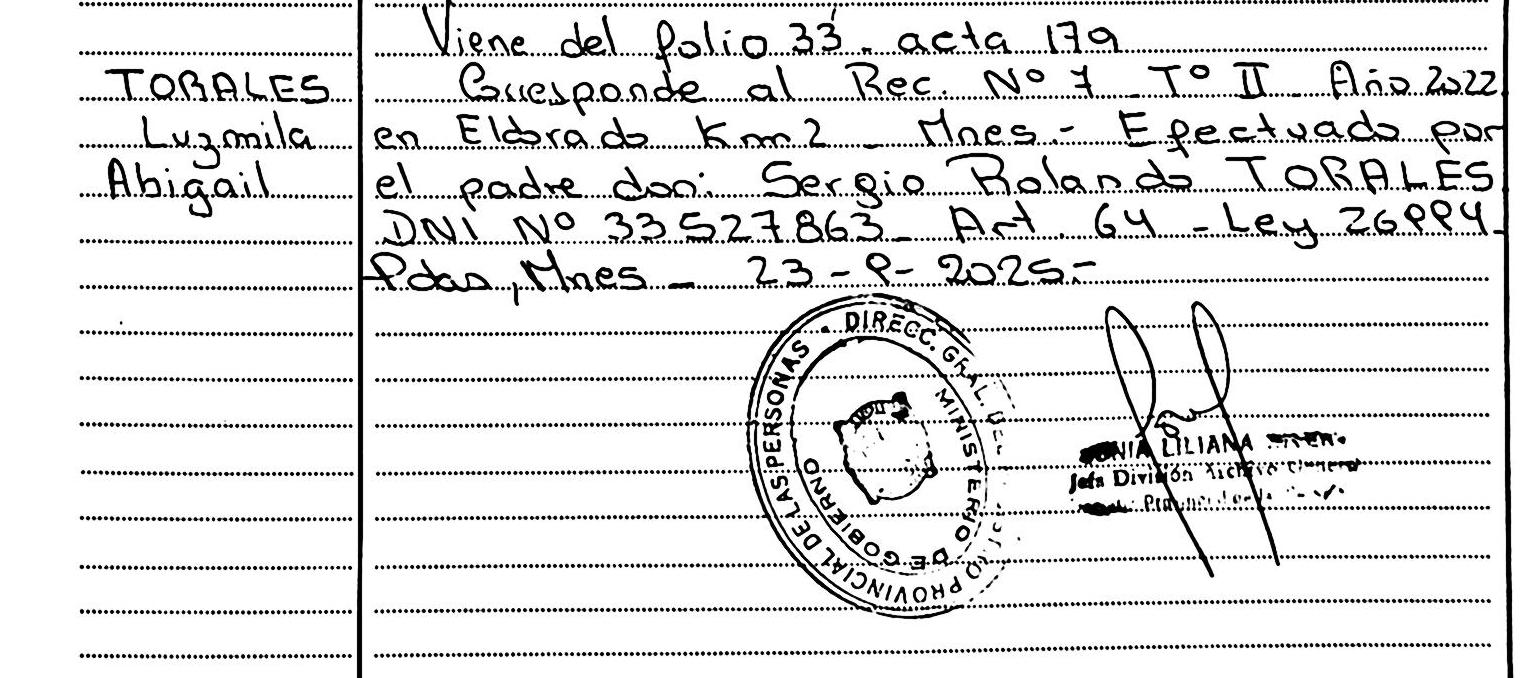 Viene del folio 33. acta 179
TORALES
Luzmila
Abigail
Corresponde al Rec. Nº 7 - Tº II - Año 2022
en Eldorado Km 2 - Mnes.- Efectuado por
el padre don: Sergio Rolando TORALES
DNI Nº 33527863- Art. 64 - Ley 26994-
Pdas, Mnes - 23 - 9 - 2025.-
DIRECC. GRAL. DEL
PROVINCIAL DE LAS PERSONAS
MINISTERIO DE GOBIERNO
LILIANA
Jefa División Archivo General